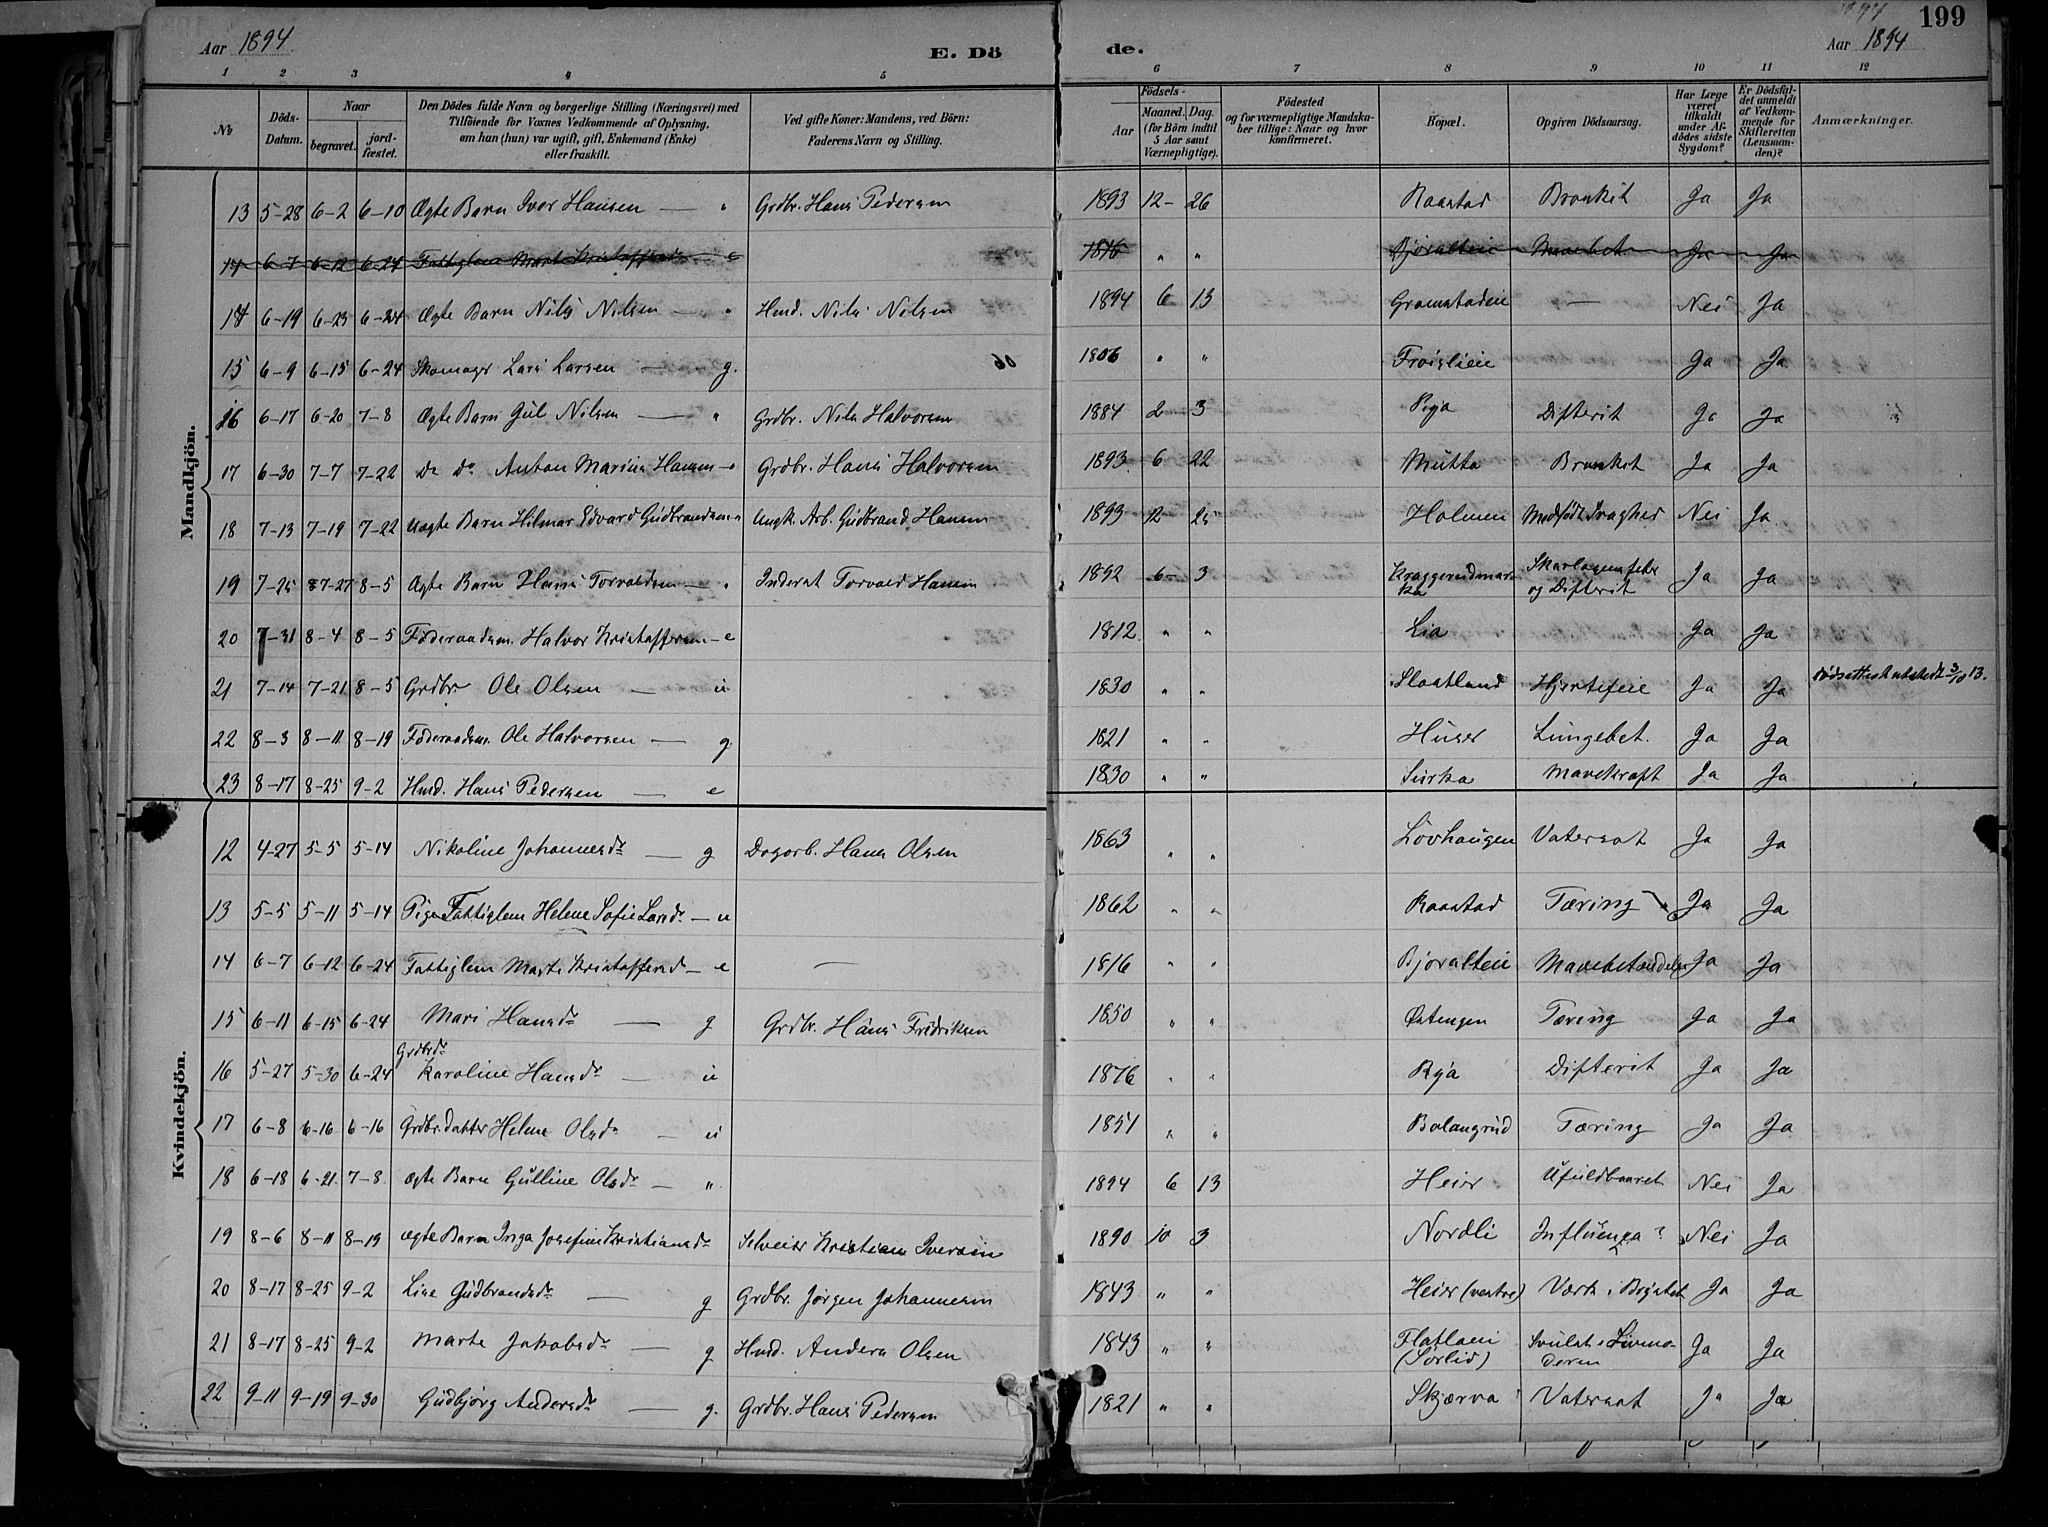 Aar 1894
E. Dö de.
1894
199
Aar 1894
1 2 3 4 5 6 7 8 9 10 11 12
No
Döds-Datum.
Naar
begravet.
jord-fæstet.
Den Dödes fulde Navn og borgerlige Stilling (Næringsvei) med
Tilföiende for Voxnes Vedkommende af Oplysning,
om han (hun) var ugift, gift, Enkemand (Enke)
eller fraskilt.
Ved gifte Koner: Mandens, ved Börn:
Faderens Navn og Stilling.
Födsels-
Aar
Maaned. Dag.
(for Börn indtil
5 Aar samt
Værnepligtige).
Födested
og for værnepligtige Mandska-
ber tillige: Naar og hvor
konfirmeret.
Bopæl.
Opgiven Dödsaarsag.
Har Læge
været
tilkaldt
under Af-
dödes sidste
Sygdom?
Er Dödsfal-
det anmeldt
af Vedkom-
mende for
Skifteretten
(Lensman-
den)?
Anmærkninger.
Mandkjön.
13 5-28 6-2 6-10 Ægte Barn Iver Hansen — " Grdbr. Hans Pedersen 1893 12- 26 Raastad Bronkit Ja Ja
14 6-7 6-12 6-24 Fattiglem Marte Kristoffersd. — e 1816 " " Bjoralteie Mavebet. Ja Ja
14 6-19 6-23 6-24 Ægte Barn Nils Nilsen — " Hmd. Nils Nilsen 1894 6 13 Gramstadeie — Nei Ja
15 6-9 6-15 6-24 Skomager Lars Larsen — g. 1806 " " Froislieie Ja Ja
16 6-17 6-20 7-8 Ægte Barn Gul Nilsen — " Grdbr. Nils Halvorsen 1884 2 3 Rya Difterit Ja Ja
17 6-30 7-7 7-22 do do Anton Marius Hansen — " Grdbr. Hans Halvorsen 1893 6 22 Mutta Bronkit Ja Ja
18 7-13 7-19 7-22 Uægte Barn Hilmar Edvard Gudbrandsen " Ungk. Arb. Gudbrand Hansen 1893 12 25 Holmen Medfödt Svaghed Nei Ja
19 7-25 7-27 8-5 Ægte Barn Hans Torvaldsen — " Inderst Torvald Hansen 1892 6- 3 Kraggerudmarka Skarlagensfeber og Difterit Ja Ja
20 7-31 8-4 8-5 Föderaadsm. Halvor Kristoffersen — e 1812. " " Lia Ja Ja
21 7-14 7-21 8-5 Grdbr. Ole Olsen — u 1830 " " Slaatland Hjertefeil Ja Ja Dödsattest utstedt 3/10 13.
22 8-3 8-11 8-19 Föderaadsm. Ole Halvorsen — g. 1821 " " Huser Lungebet. Ja Ja
23 8-17 8-25 9-2 Hmd. Hans Pedersen — e 1830 " " Surka Mavekræft Ja Ja
Kvindekjön.
12 4-27 5-5 5-14 Nikoline Johannesdr — g Dagarb. Hans Olsen 1863 " " Lövhaugen Vatersot Ja Ja
13 5-5 5-11 5-14 Pige Fattiglem Helene Sofie Larsdr — u 1862 " " Raastad Tæring Ja Ja
14 6-7 6-12 6-24 Fattiglem Marte Kristoffersd — e — 1816 " " Bjoralteie Mavebetændelse Ja Ja
15 6-11 6-15 6-24 Mari Hansdr — g Grdbr. Hans Fredriksen 1850 " " Østengen Tæring Ja Ja
16 5-27 5-30 6-24 Grdbrdr Karoline Hansdr — u 1876 " " Rya Difterit Ja Ja
17 6-8 6-16 6-16 Grdbr. datter Helene Olsdr — u 1851 " " Bolangrud Tæring Ja Ja
18 6-18 6-21 7-8 Ægte Barn Gulline Olsdr — " 1894 6 13 Heier Ufuldbaaret Nei Ja
19 8-6 8-11 8-19 Ægte Barn Inga Josefine Kristiansdr Selveier Kristian Iversen 1890 10 3 Nordli Influenza? Nei Ja
20 8-17 8-25 9-2 Lise Gudbrandsdr — g Grdbr. Jörgen Johannesen 1843 " " Heier (vestre) Værk i Brystet Ja Ja
21 8-17 8-25 9-2 Marte Jakobsdr — g Hmd. Anders Olsen 1843 " " Flatlaei (Sorlid) Svulst i Livmoderen Ja Ja
22 9-11 9-19 9-30 Gudbjörg Andersdr — g. Grdbr. Hans Pedersen 1821 " " Skjærva Vatersot Ja Ja